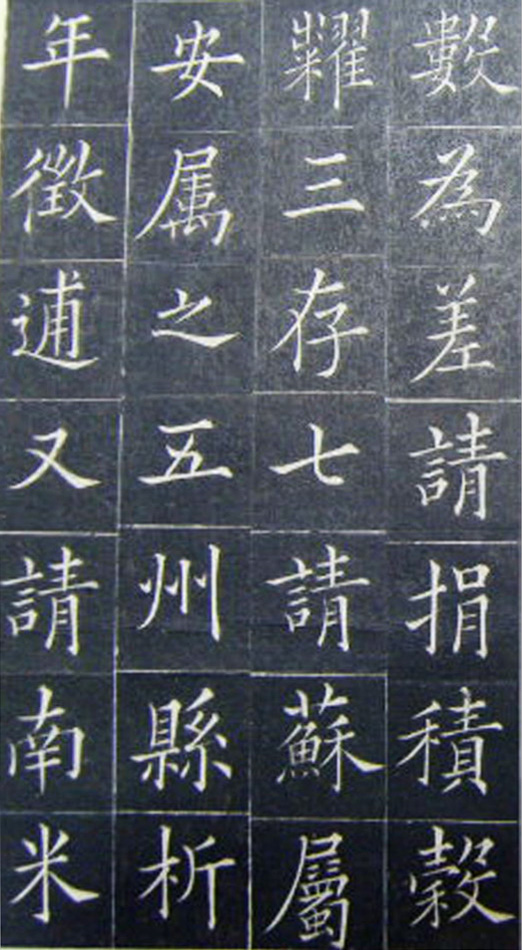 數為差請捐積穀
糶三存七請蘇屬
安属之五州縣析
年徵逋又請南米